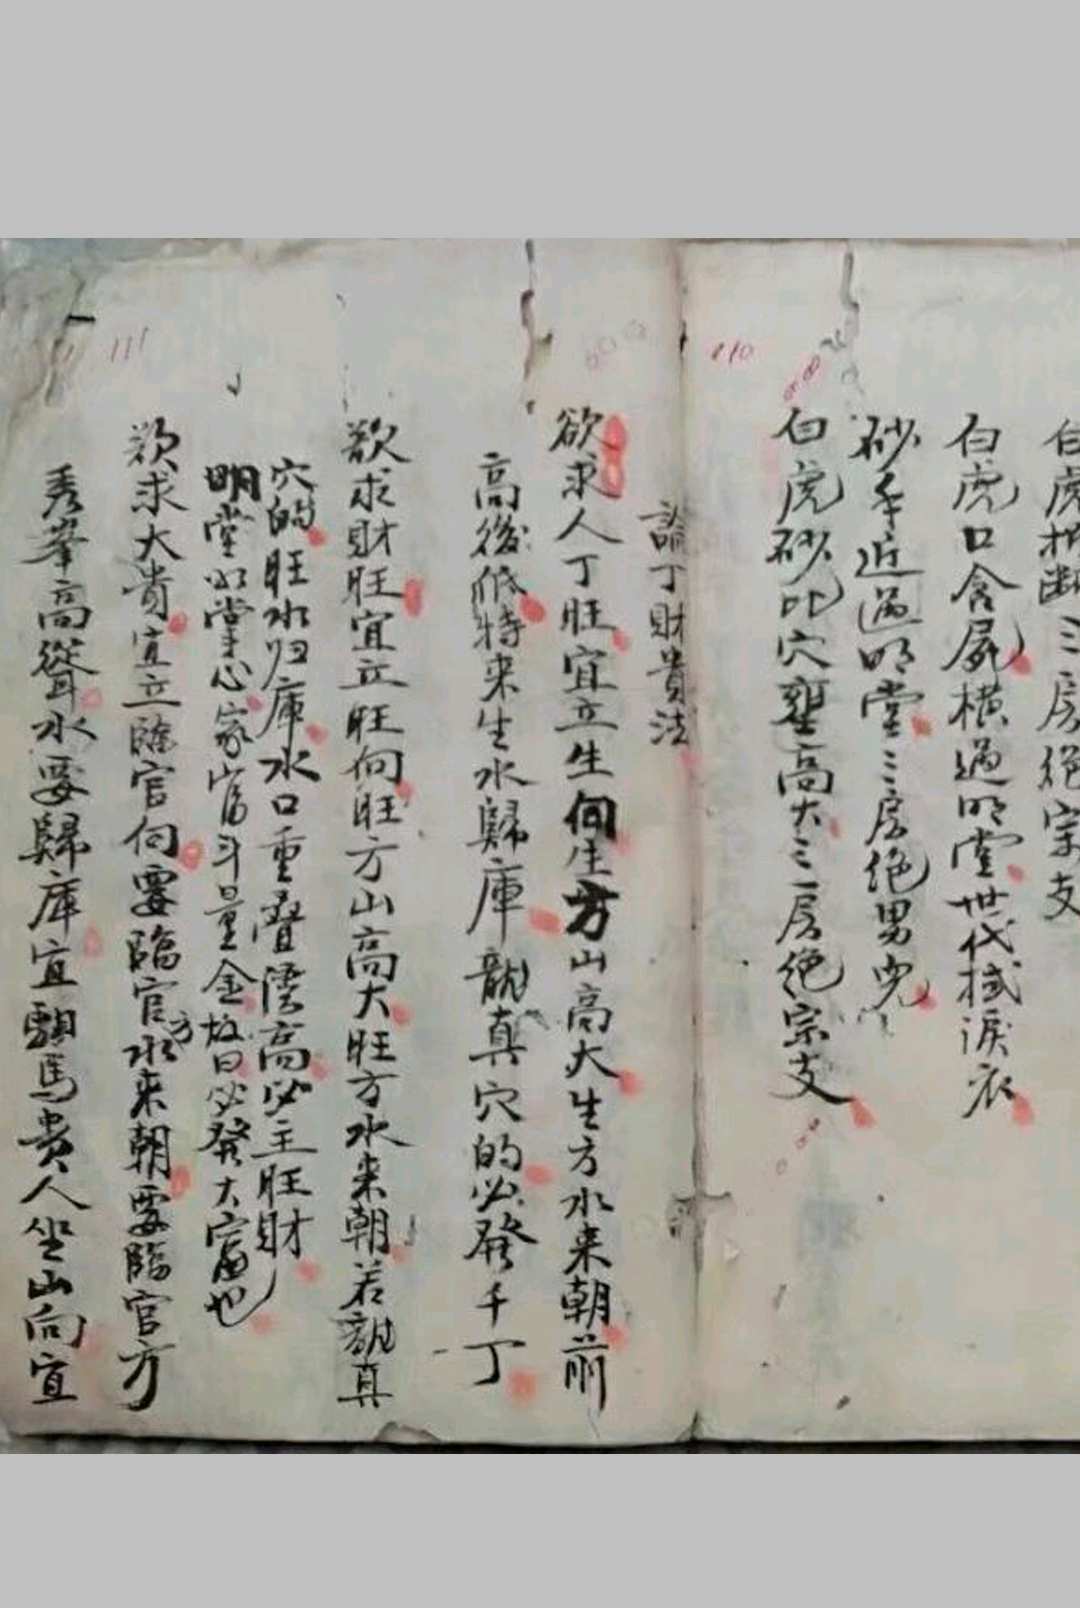 110
白虎 断三房绝宗支
白虎口含屍横過明堂世代 淚衣
砂手近過明堂三房绝男児
白虎砂比穴 高大三房绝宗支
111
論丁財貴法
欲求人丁旺宜立生向生方山高大生方水来朝前
高後低特来生水歸庫龍真穴的必發千丁
欲求財旺宜立旺向旺方山高大旺方水来朝若龍真
穴的旺水归庫水口重疊 高必主旺財
明堂如掌心家富斗量金放曰必發大富也
欲求大贵宜立臨官向要臨官方水来朝要臨官方
秀峯高聳水要歸庫宜馹馬贵人坐山向宜